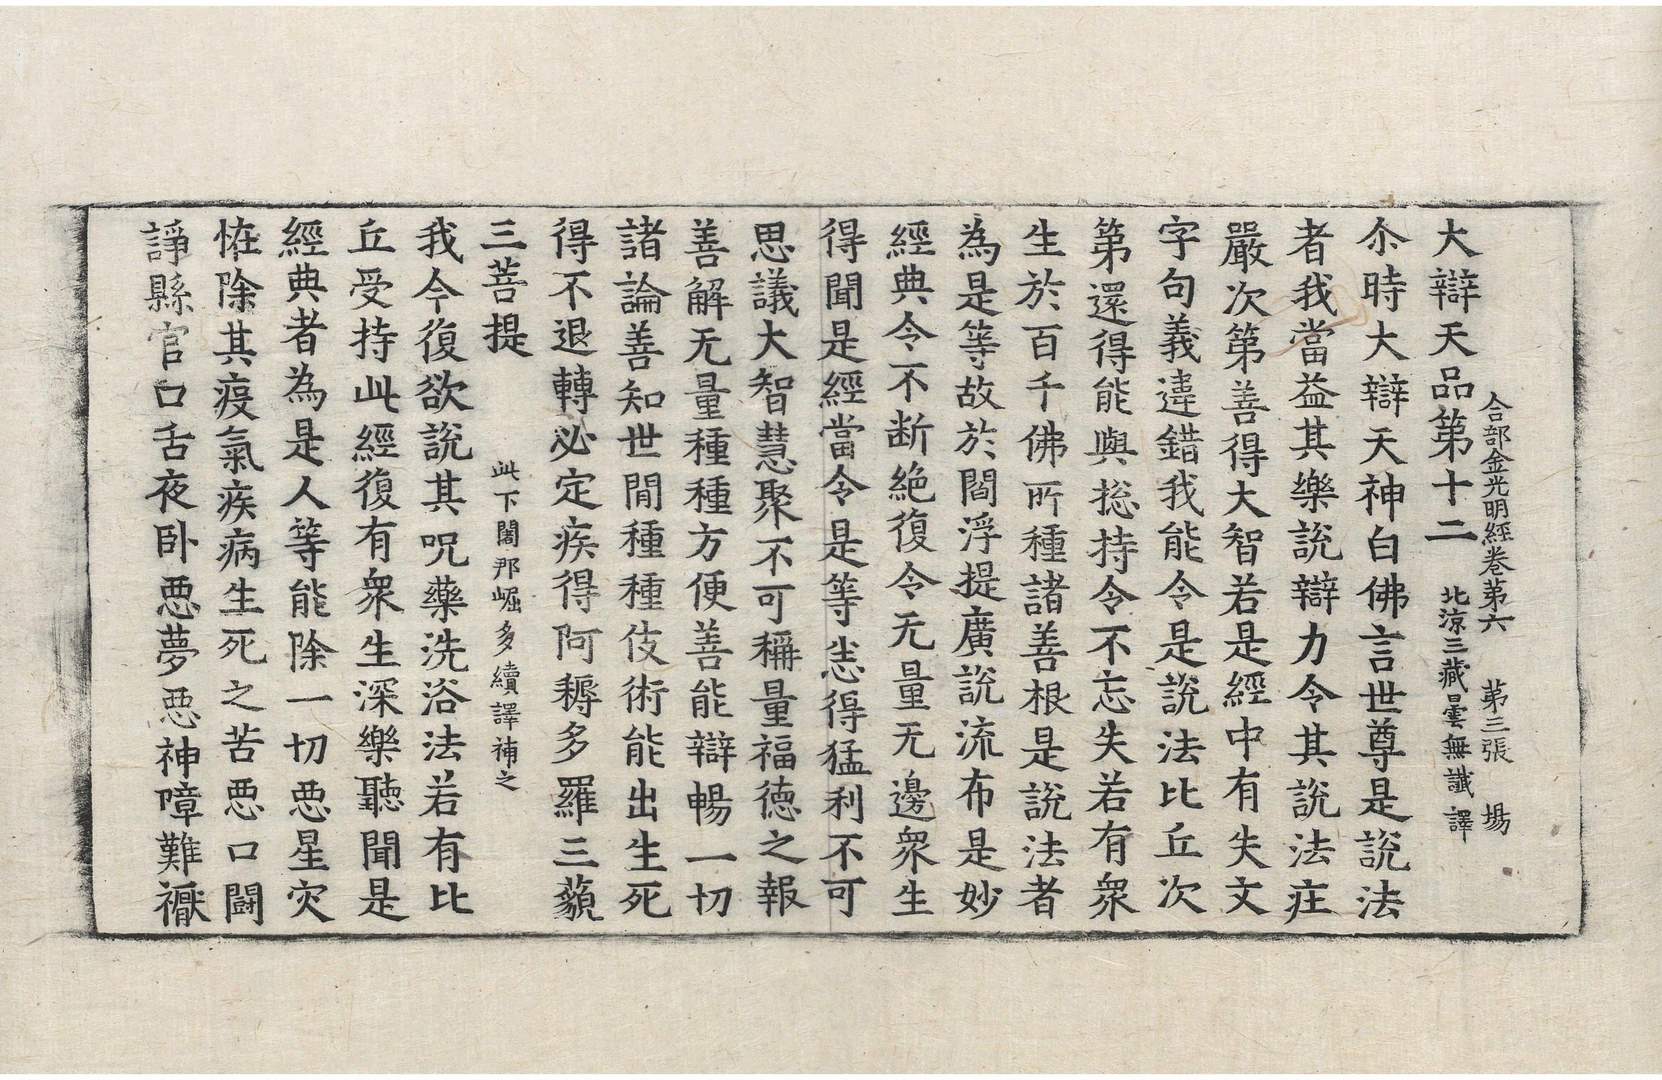 合部金光明經卷第六　第三張　場
大辯天品第十二　北涼三藏曇無讖譯
尒時大辯天神白佛言世尊是說法
者我當益其樂說辯力令其說法庄
嚴次第善得大智若是經中有失文
字句義違錯我能令是說法比丘次
第還得能與捴持令不忘失若有衆
生於百千佛所種諸善根是說法者
為是等故於閻浮提廣說流布是妙
經典令不断絶復令无量无邊衆生
得聞是經當令是等悉得猛利不可
思議大智慧聚不可稱量福德之報
善解无量種種方便善能辯暢一切
諸論善知世間種種伎術能出生死
得不退轉必定疾得阿耨多羅三藐
三菩提　此下闍那崛多續譯補之
我今復欲說其呪藥洗浴法若有比
丘受持此經復有衆生深樂聽聞是
經典者為是人等能除一切惡星灾
恠除其疫氣疾病生死之苦惡口鬪
諍縣官口舌夜卧惡夢惡神障難猒